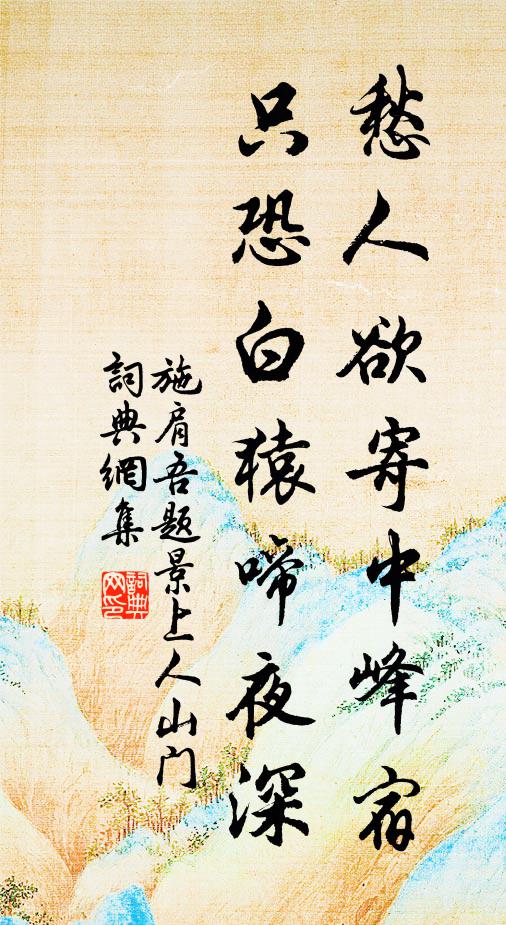 愁人欲寄中峰宿
只恐白猿啼夜深
施肩吾题景上人山门
詞典網集
詞典网印